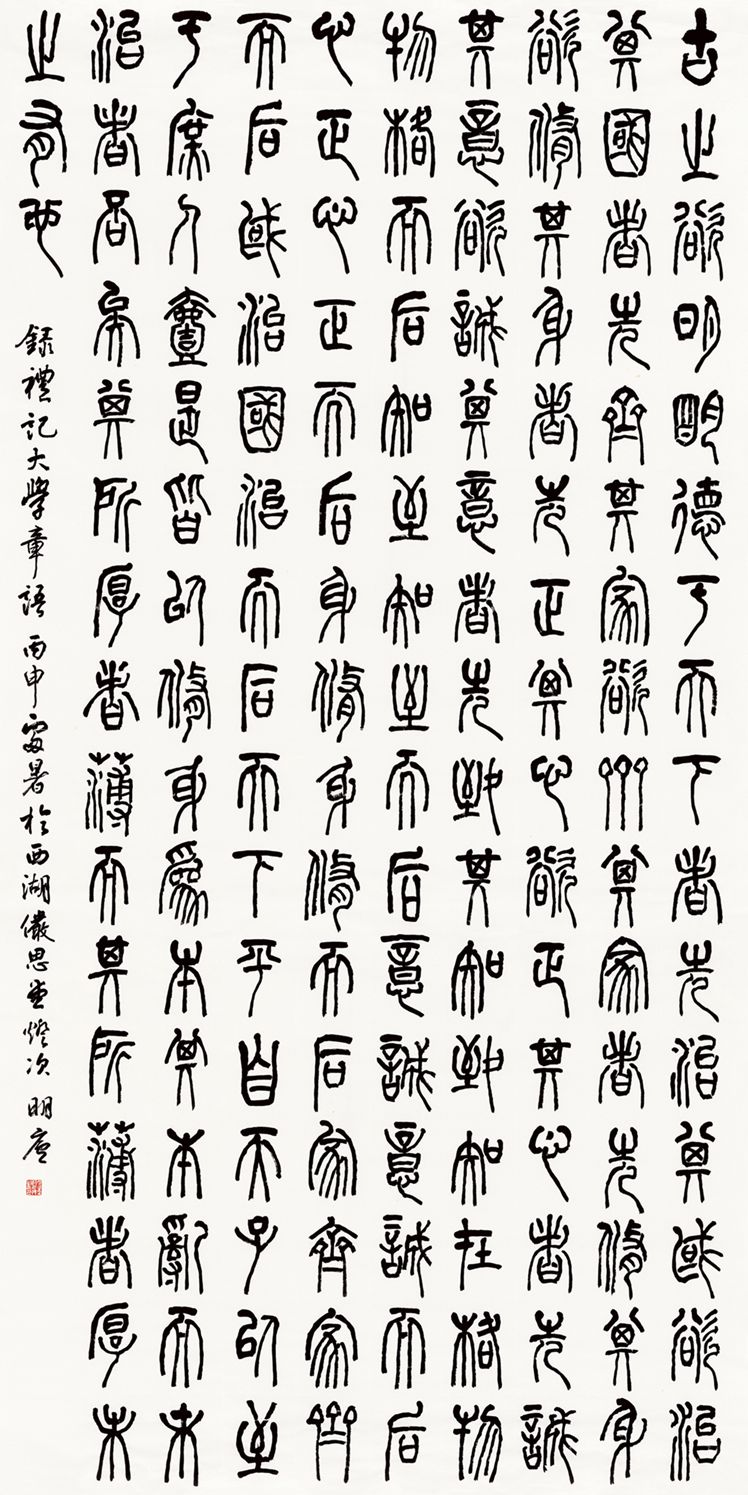 古之欲明明德于天下者先治其國欲治
其國者先齊其家欲齊其家者先脩其身
欲脩其身者先正其心欲正其心者先誠
其意欲誠其意者先致其知致知在格物
物格而后知至知至而后意誠意誠而后
心正心正而后身脩身脩而后家齊家齊
而后國治國治而后天下平自天子以至
于庶人壹是皆以脩身為本其本亂而末
治者否矣其所厚者薄而其所薄者厚未
之有也
錄禮記大學章語 丙申處暑於西湖儼思堂燈次 明